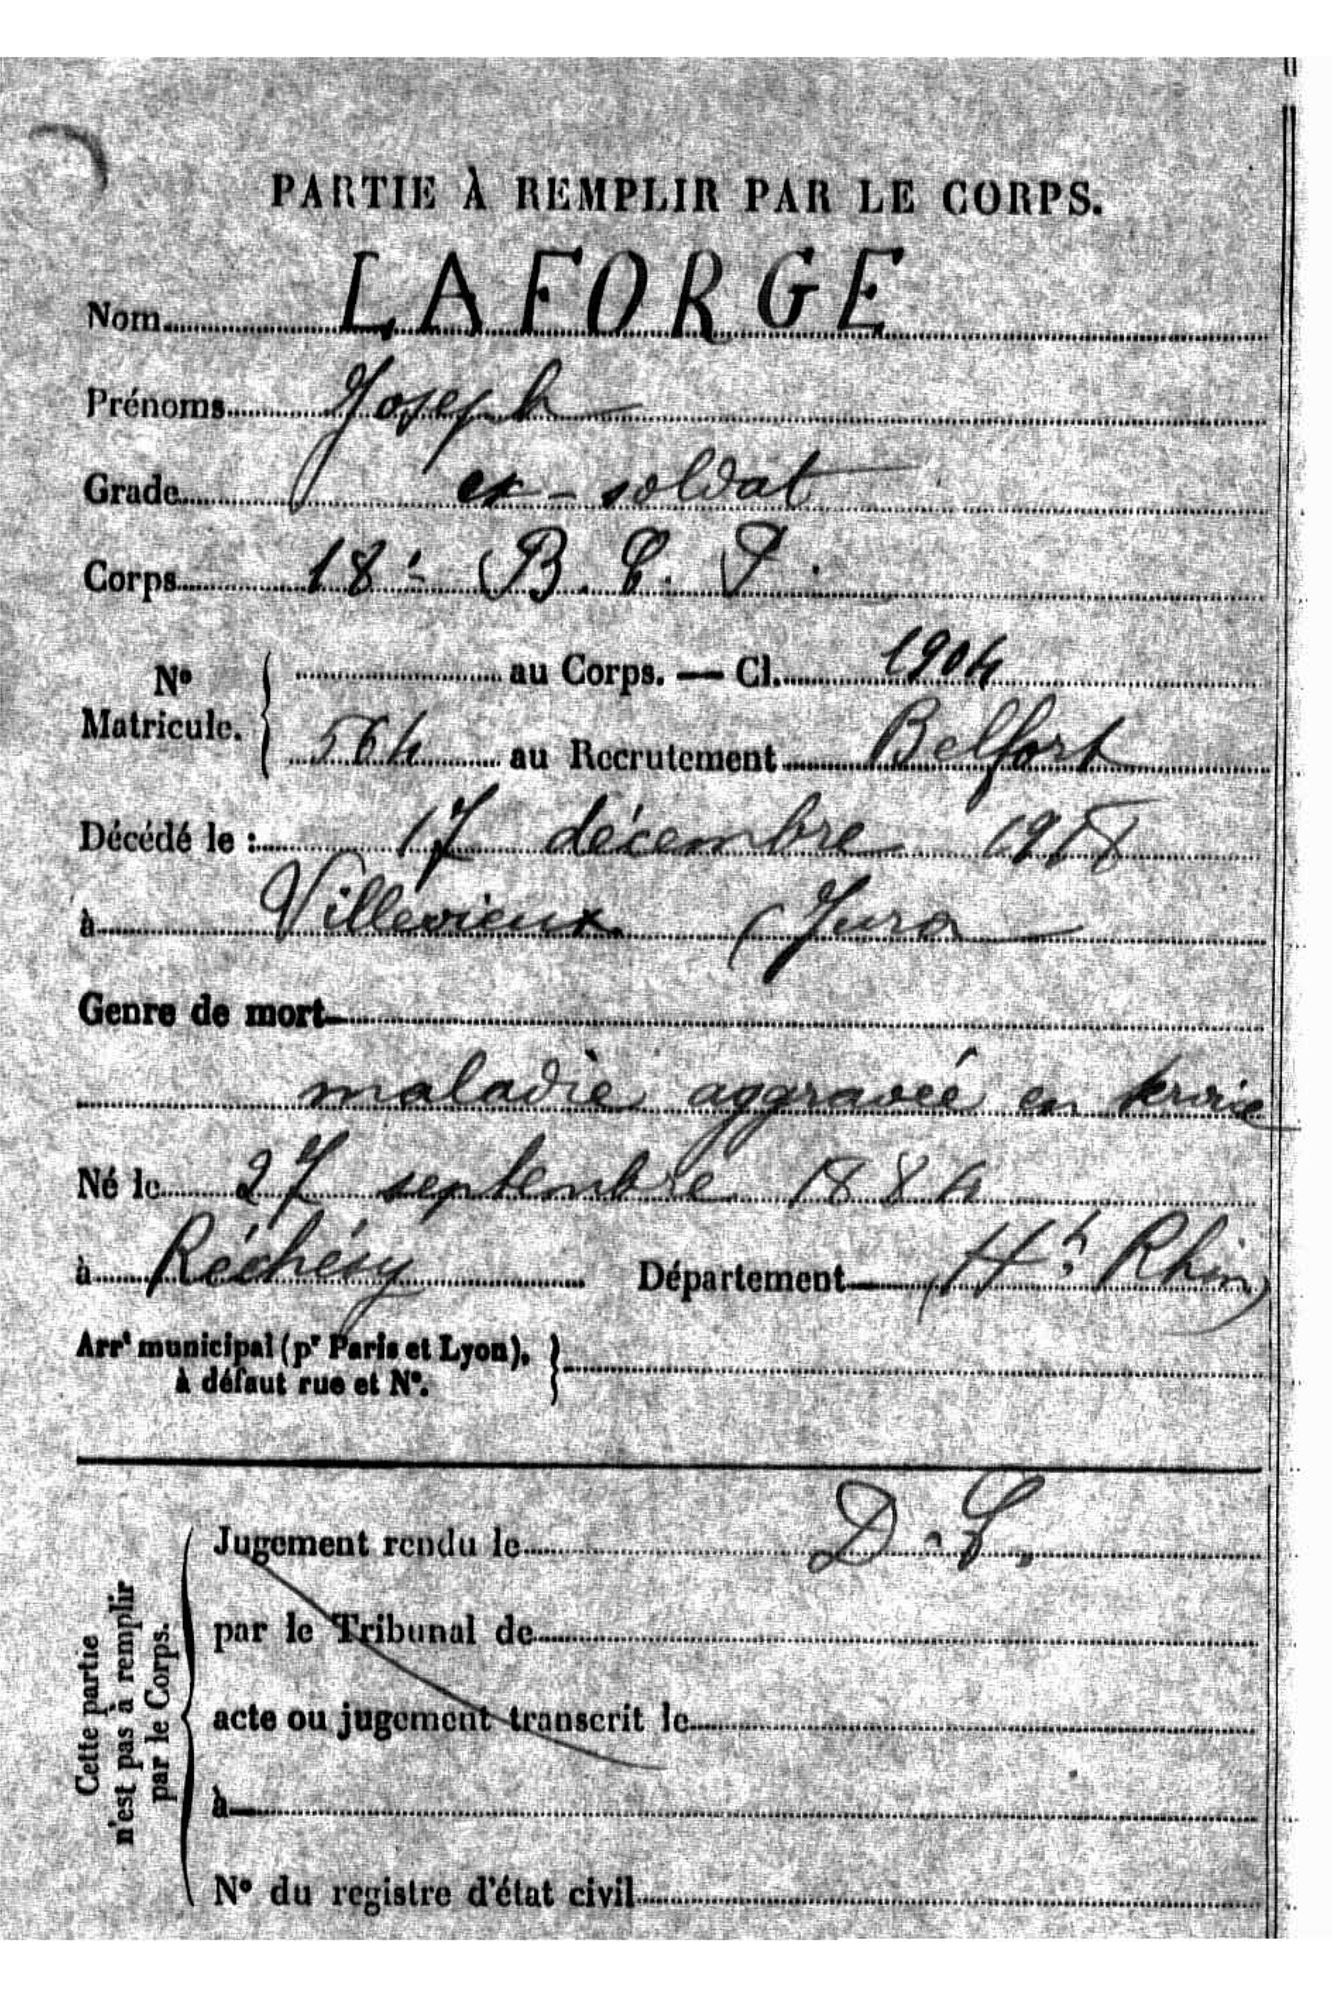 PARTIE À REMPLIR PAR LE CORPS.
Nom LAFORGE
Prénoms Joseph
Grade ex-soldat
Corps 18e B. C. P.
No Matricule. { au Corps. — Cl. 1904
564 au Recrutement Belfort
Décédé le : 17 décembre 1918
à Villevieux (Jura
Genre de mort
maladie aggravée en service
Né le 27 septembre 1884
à Réchésy Département (Ht Rhin)
Arrt municipal (pr Paris et Lyon), }
à défaut rue et No.
D. C.
Jugement rendu le
par le Tribunal de
acte ou jugement transcrit le
à
No du registre d'état civil
Cette partie
n'est pas à remplir
par le Corps.